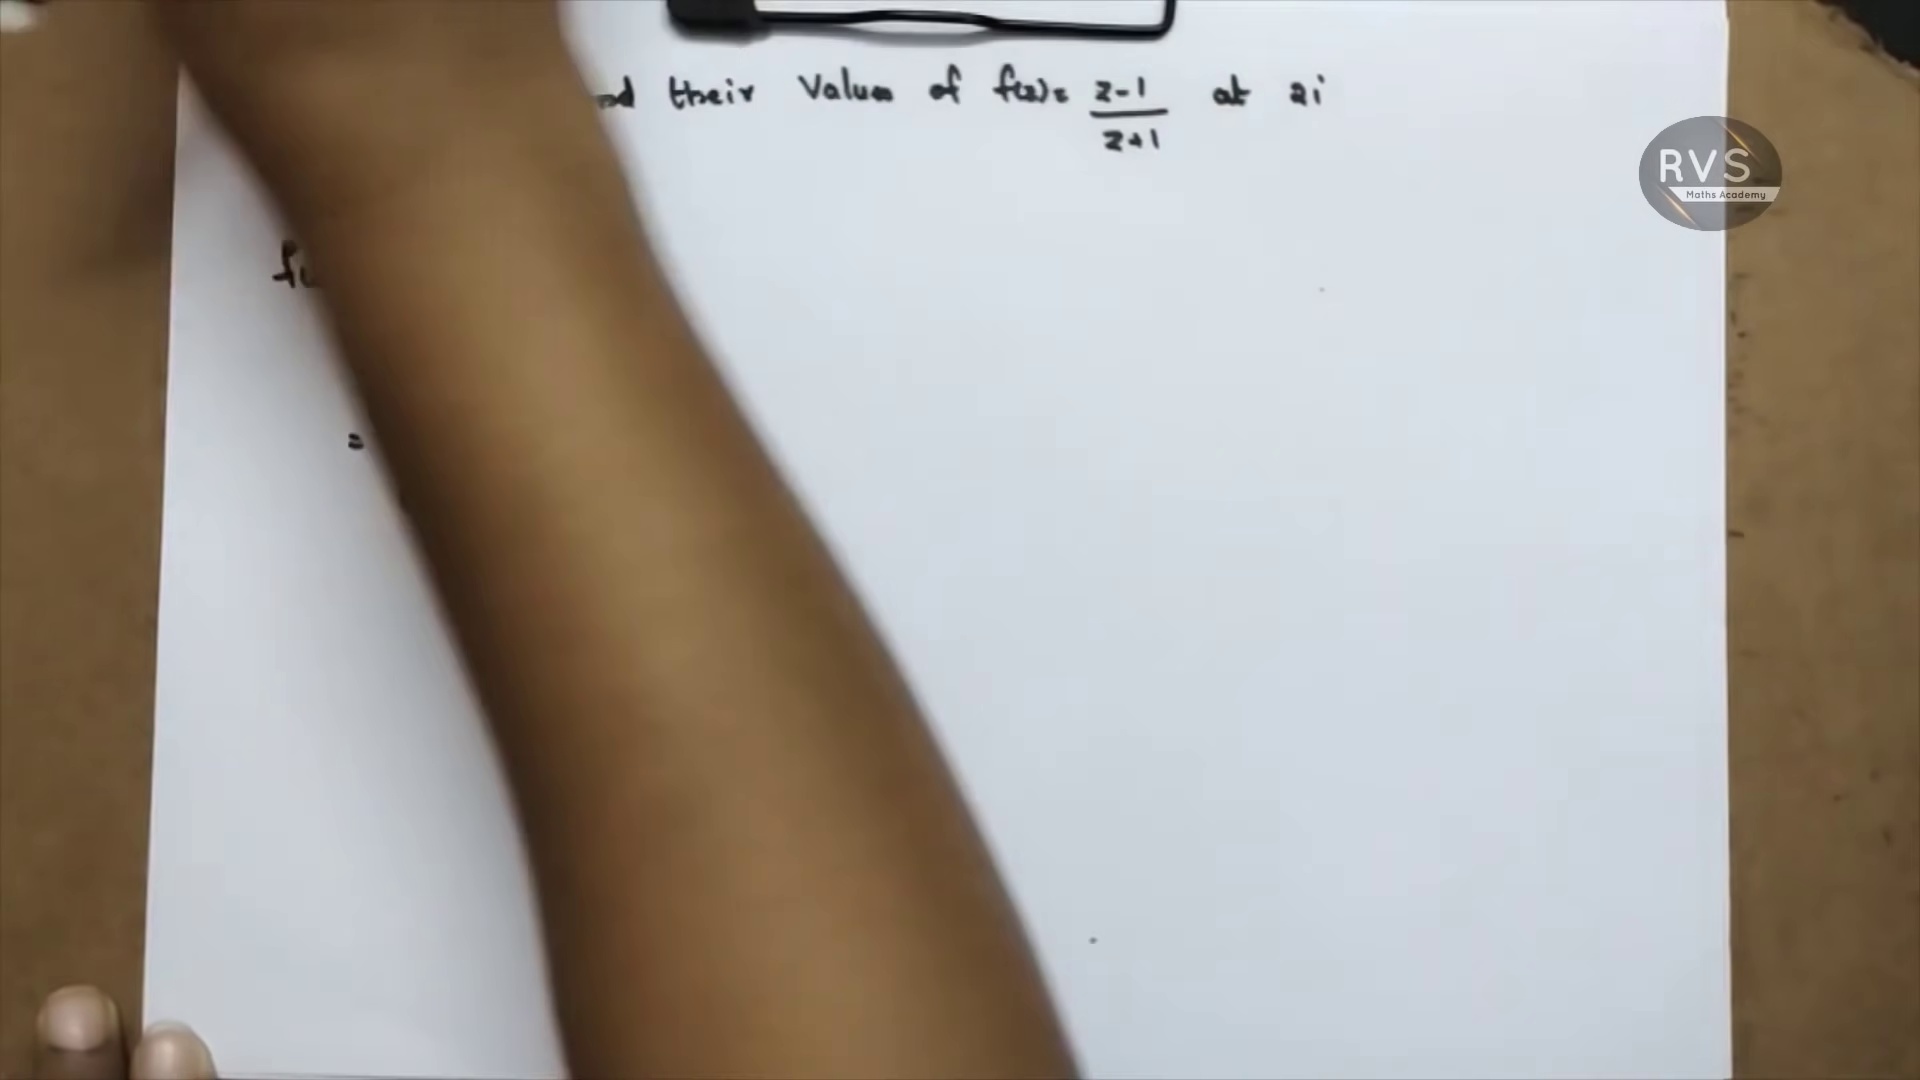 their Values of f(z) = z-1 / z+1 at 2i
RVS
Maths Academy
=